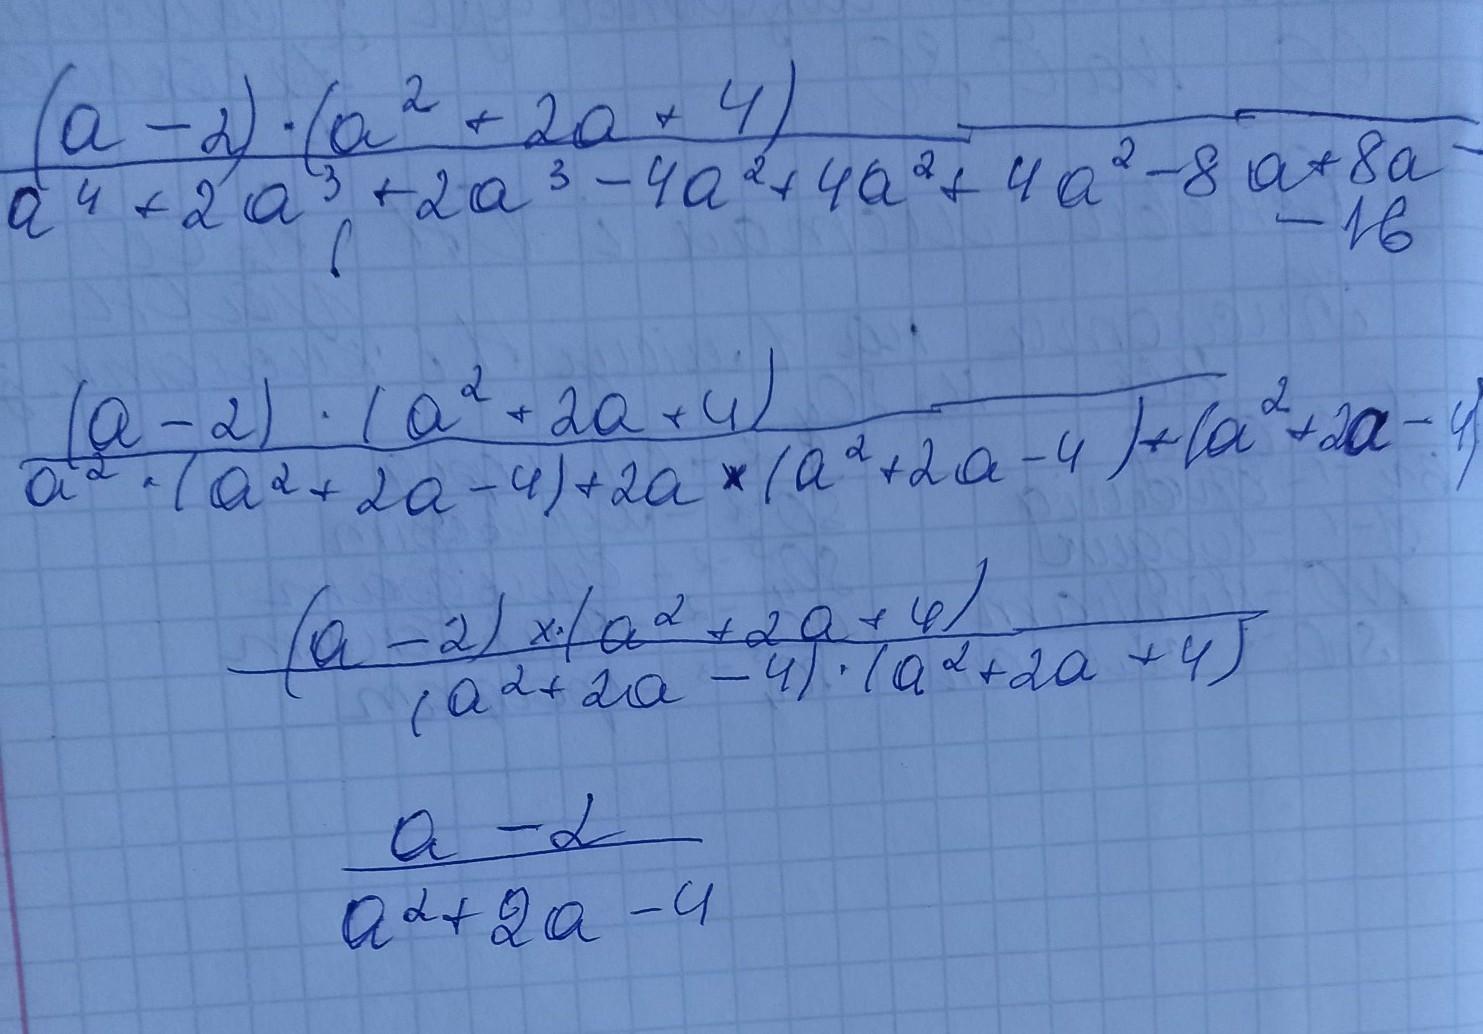 (a - 2) · (a² + 2a + 4)
a⁴ + 2a³ + 2a³ - 4a² + 4a² + 4a² - 8a + 8a -
- 16
(a - 2) · (a² + 2a + 4)
a² · (a² + 2a - 4) + 2a × (a² + 2a - 4) + (a² + 2a - 4)
(a - 2) × · (a² + 2a + 4)
(a² + 2a - 4) · (a² + 2a + 4)
a - 2
a² + 2a - 4